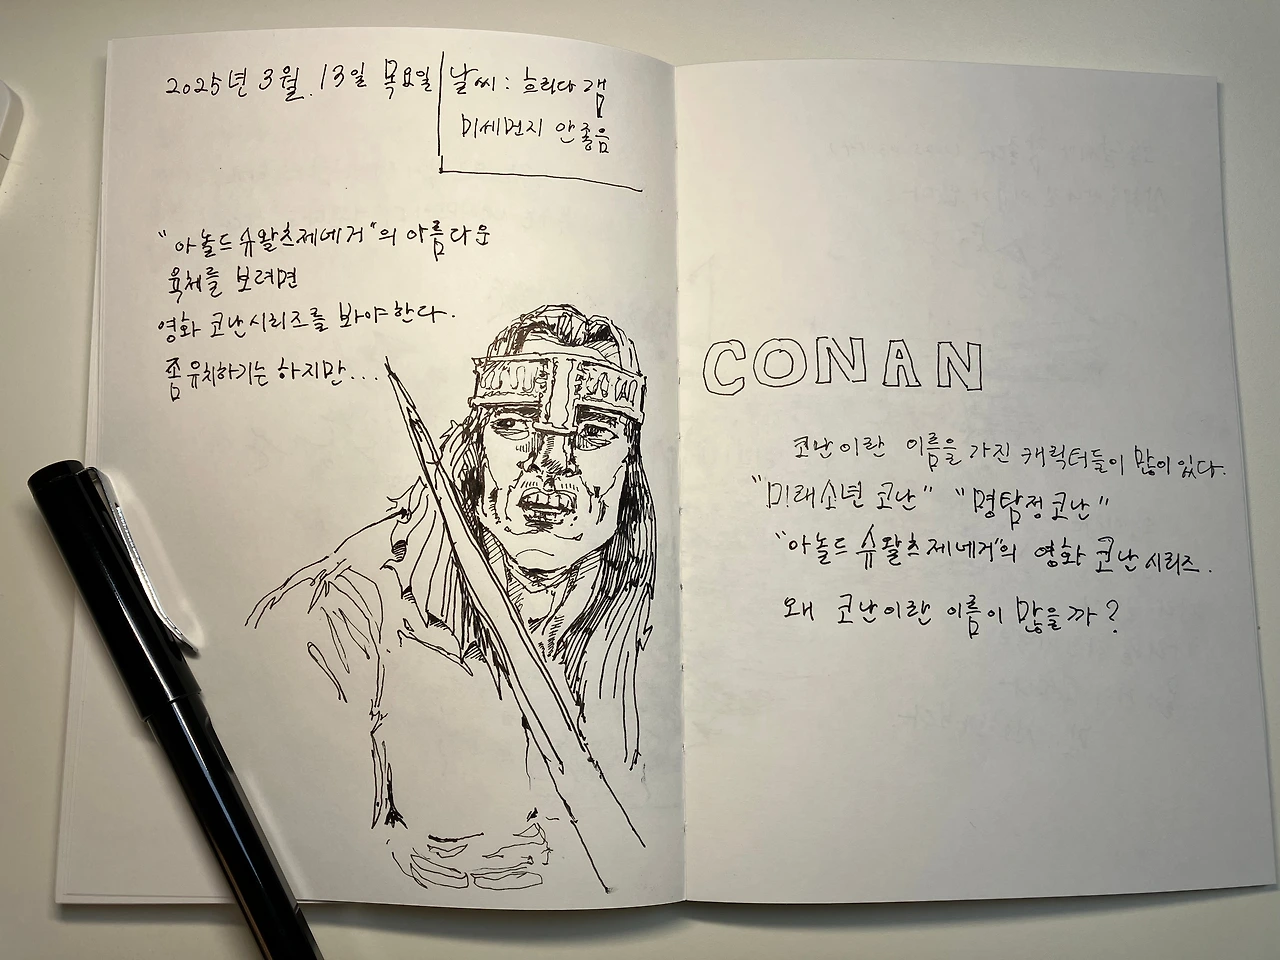 2025년 3월. 13일 목요일
날씨 : 흐리다 갬
미세먼지 안좋음
"아놀드 슈왈츠제네거"의 아름다운
육체를 보려면
영화 코난시리즈를 봐야한다.
좀 유치하기는 하지만...
CONAN
코난이란 이름을 가진 캐릭터들이 많이 있다.
"미래소년 코난" "명탐정코난"
"아놀드 슈왈츠제네거"의 영화 코난 시리즈.
왜 코난이란 이름이 많을까?